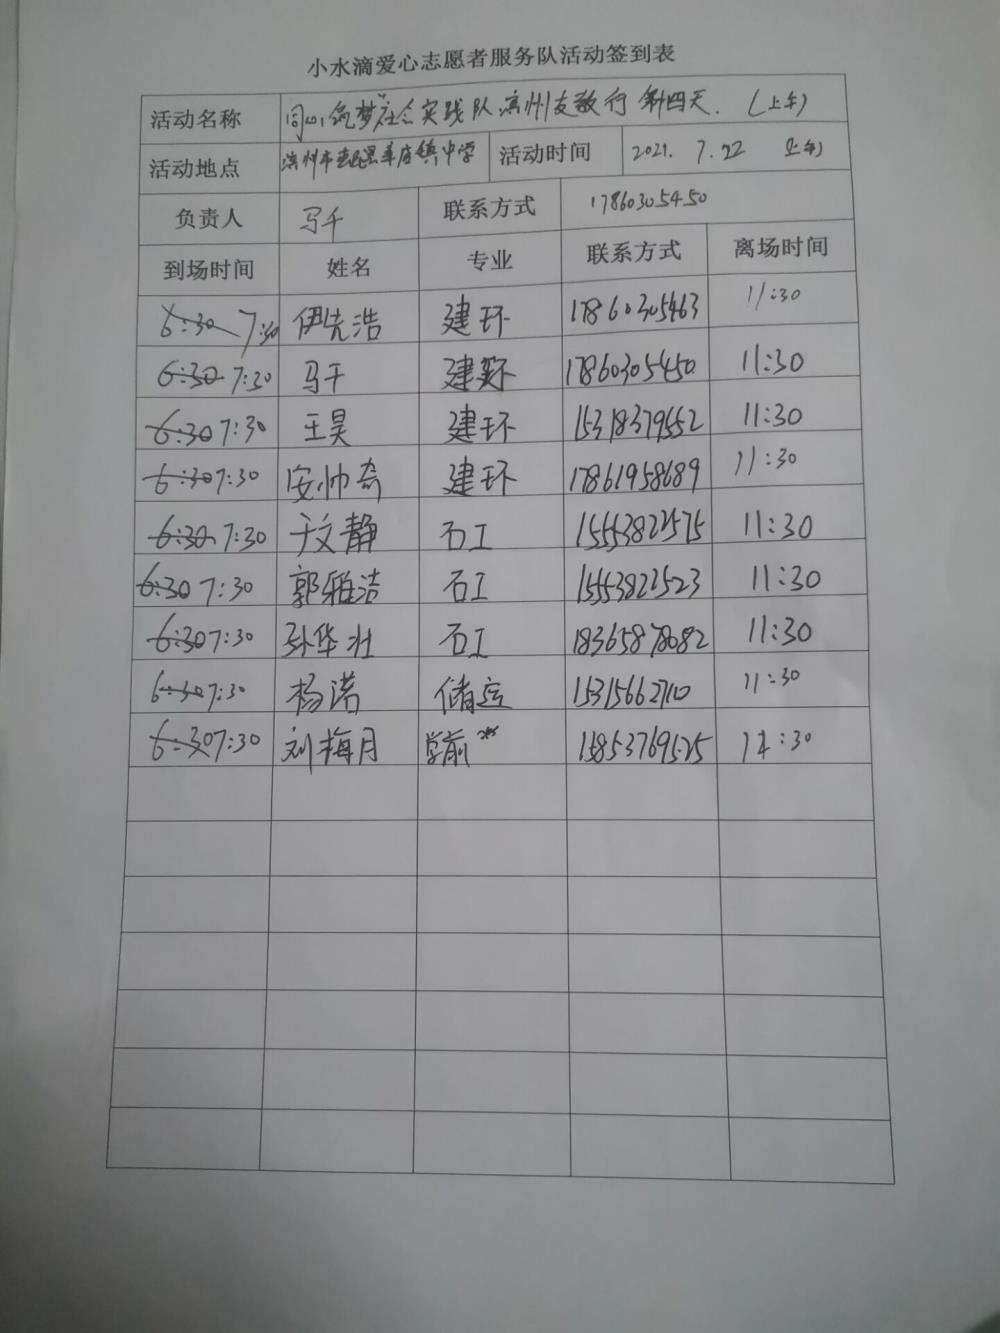 小水滴爱心志愿者服务队活动签到表
活动名称 同心筑梦社会实践队滨州支教行 第四天. (上午)
活动地点 滨州市 镇中学 活动时间 2021. 7. 22 上午)
负责人 马千 联系方式 17860305450
到场时间 姓名 专业 联系方式 离场时间
6:30 7:30 伊先浩 建环 17860305463 11:30
6:30 7:30 马千 建环 17860305450 11:30
6:30 7:30 王昊 建环 15318379552 11:30
6:30 7:30 安帅奇 建环 17861958689 11:30
6:30 7:30 于文静 石工 15553822575 11:30
6:30 7:30 郭雅洁 石工 15553822523 11:30
6:30 7:30 孙华壮 石工 18365878082 11:30
6:30 7:30 杨诺 储运 15315662710 11:30
6:30 7:30 刘梅月 学前 15853769525 11:30